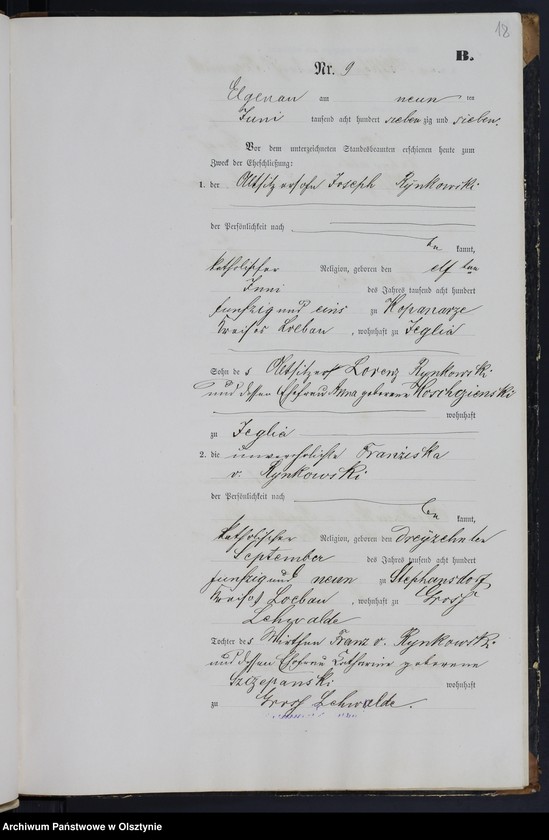 18
B.
Nr. 9
Elgenau am neun ten
Juni tausend acht hundert siebenzig und sieben.
Vor dem unterzeichneten Standesbeamten erschienen heute zum
Zweck der Eheschließung:
1. der Altsitzersohn Joseph Rynkowski
der Persönlichkeit nach
be kannt,
katholischer Religion, geboren den elf ten
Juni des Jahres tausend acht hundert
funfzig und eins zu Kopaniarze
Kreises Loebau, wohnhaft zu Jeglia
Sohn des Altsitzers Lorenz Rynkowski
und dessen Ehefrau Anna geborene
wohnhaft
zu Jeglia
2. die unverehelichte Franziska
v. Rynkowski
der Persönlichkeit nach
be kannt,
katholischer Religion, geboren den dreyzehnten
September des Jahres tausend acht hundert
funfzig und neun zu Stephansdorf
Kreises Loebau, wohnhaft zu Gross
Lehwalde
Tochter des Wirthen Franz v. Rynkowski
und dessen Ehefrau Catharine geborene
Szczepanski wohnhaft
zu Gross Lehwalde.
Archiwum Państwowe w Olsztynie